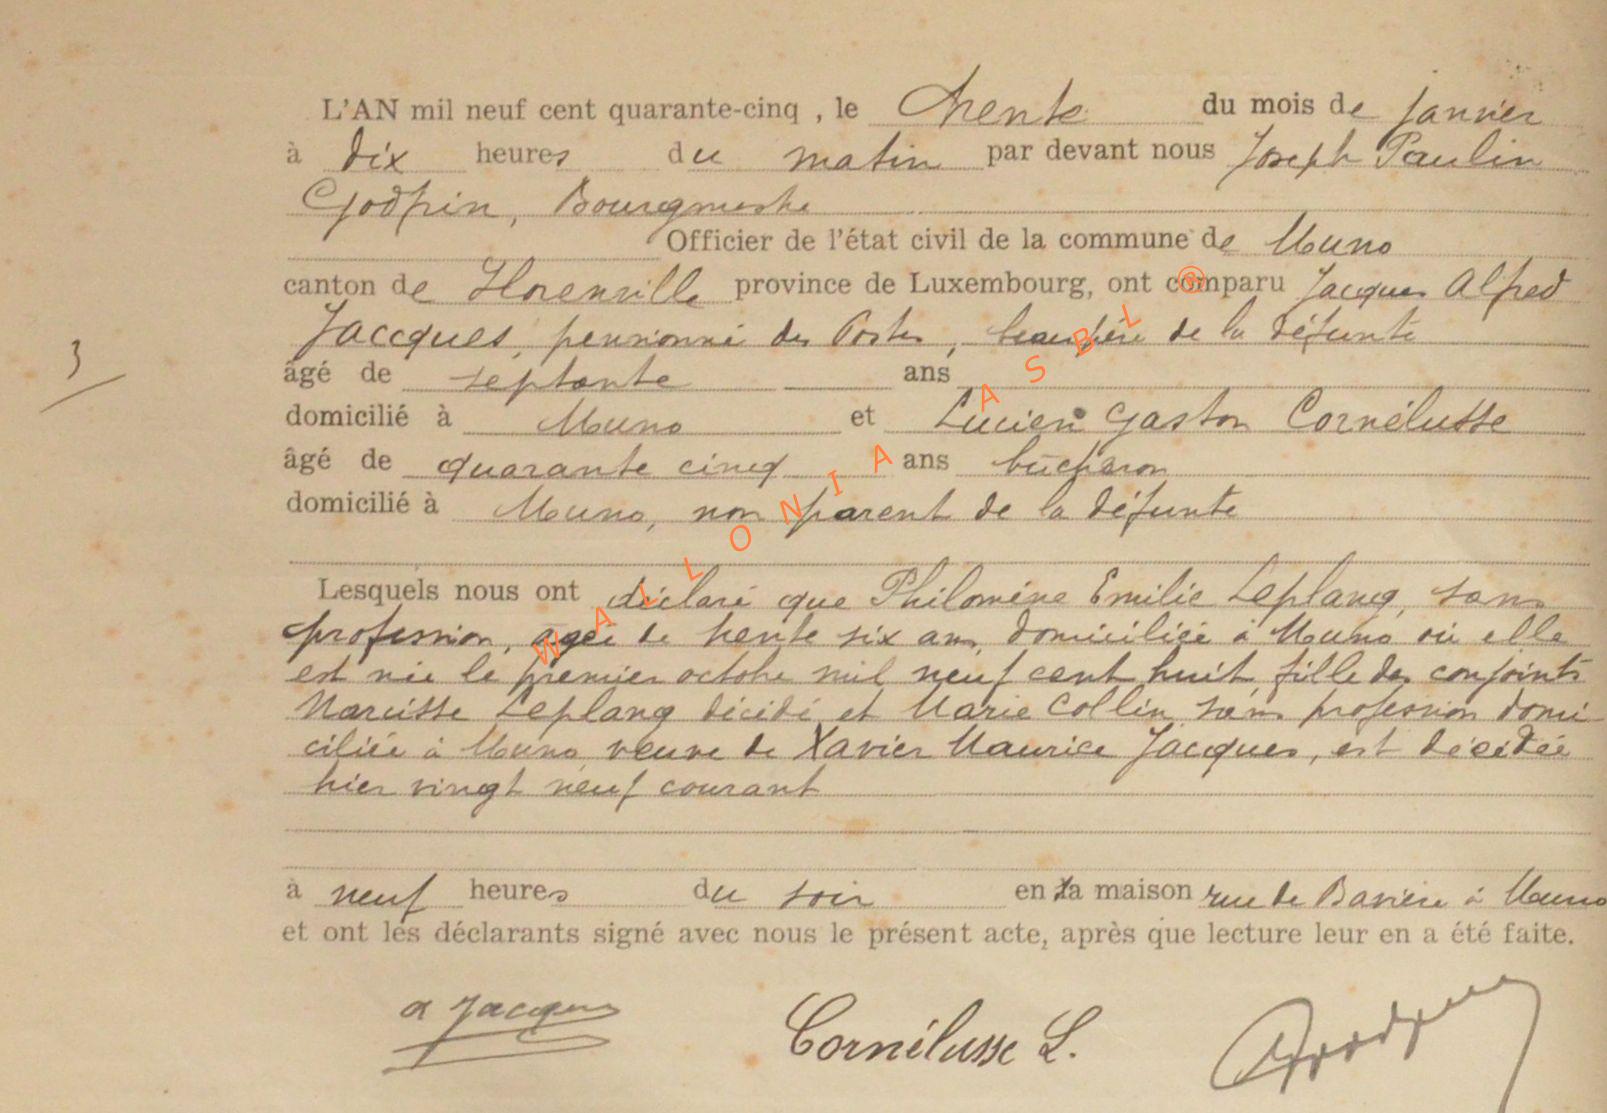 L'AN mil neuf cent quarante-cinq , le trente du mois de janvier
à dix heures du matin par devant nous Joseph Paulin
Godfrin, Bourgmestre
Officier de l'état civil de la commune de Muno
canton de Florenville province de Luxembourg, ont comparu Jacques Alfred
Jaccques, pensionné des Postes, beau-père de la défunte
3
âgé de septante ans
domicilié à Muno et Lucien Gaston Cornélusse
âgé de quarante cinq ans bûcheron
domicilié à Muno, non parent de la défunte
Lesquels nous ont déclaré que Philomène Emilie Leplang, sans
profession, agée de trente six ans, domiciliée à Muno où elle
est née le premier octobre mil neuf cent huit, fille des conjoints
Narcisse Leplang décédé et Marie Collin, sans profession domi-
ciliée à Muno, veuve de Xavier Maurice Jacques, est décédée
hier vingt neuf courant
à neuf heures du soir en sa maison rue de Bavière à Muno
et ont les déclarants signé avec nous le présent acte, après que lecture leur en a été faite.
a Jacques Cornélusse L.
WALLONIA ASBL ®